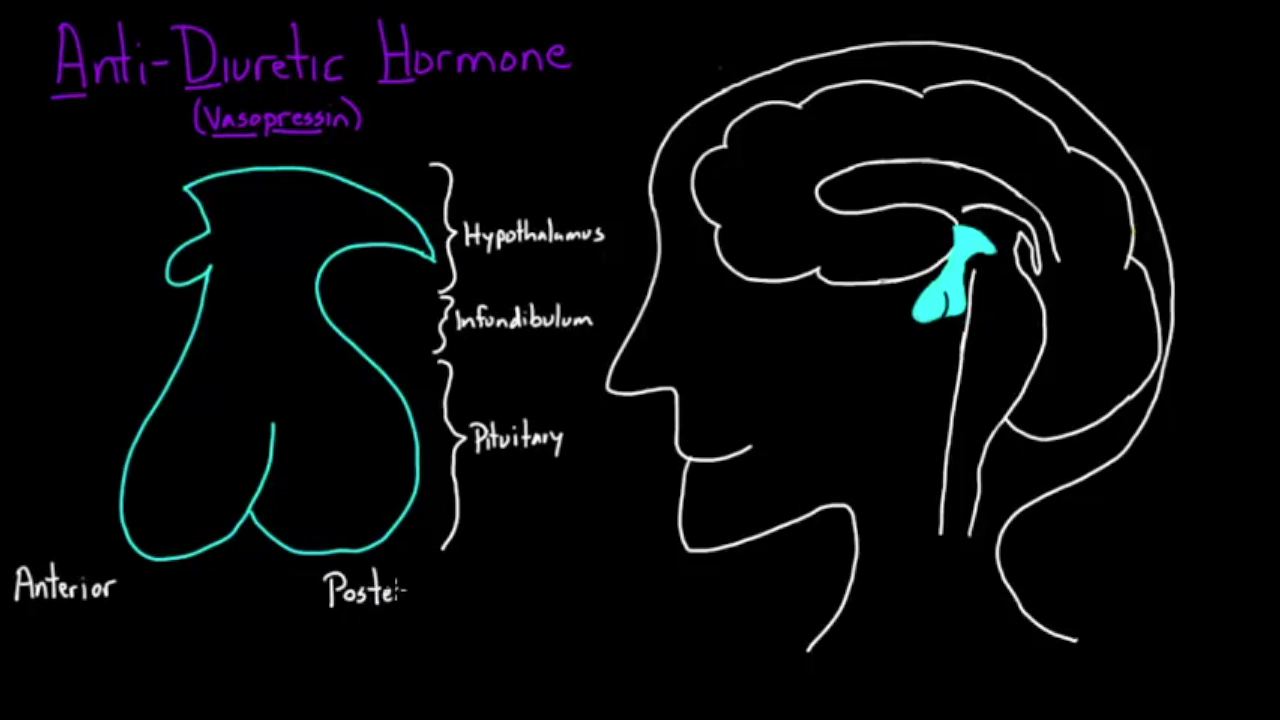 Anti-Diuretic Hormone
(Vasopressin)
Hypothalamus
Infundibulum
Pituitary
Anterior
Poste